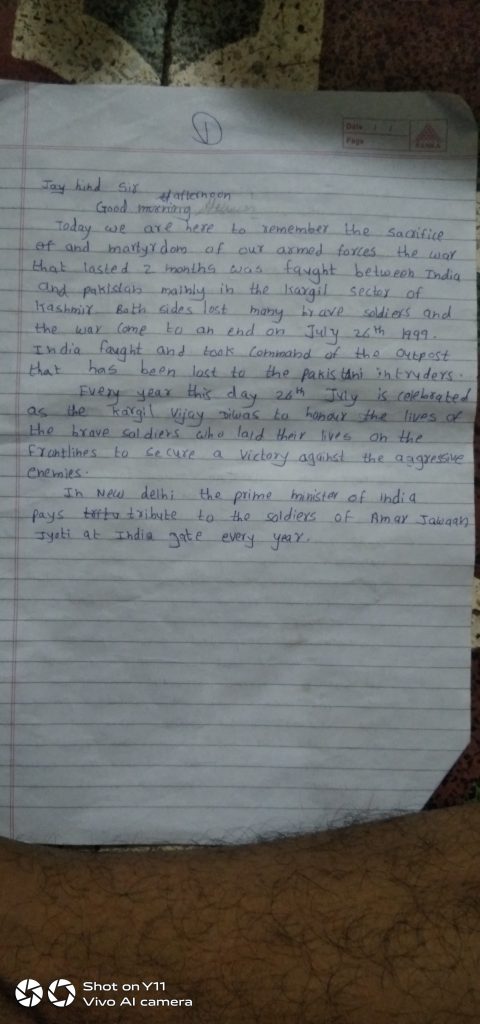 1
Date / /
Page
RANKA
Jay hind Sir
afternoon
Good morning
Today we are here to remember the sacrifice
of and martyrdom of our armed forces the war
that lasted 2 months was faught between India
and pakistan mainly in the kargil sector of
Kashmir. Both sides lost many brave soldiers and
the war come to an end on July 26th 1999.
India faught and took command of the outpost
that has been lost to the pakistani intruders.
Every year this day 26th July is celebrated
as the kargil vijay Diwas to honour the lives of
the brave soldiers who laid their lives on the
Frontlines to secure a victory against the aggressive
enemies.
In New delhi the prime minister of india
pays tritu tribute to the soldiers of Amar Jawaan
Jyoti at India gate every year.
Shot on Y11
Vivo AI camera